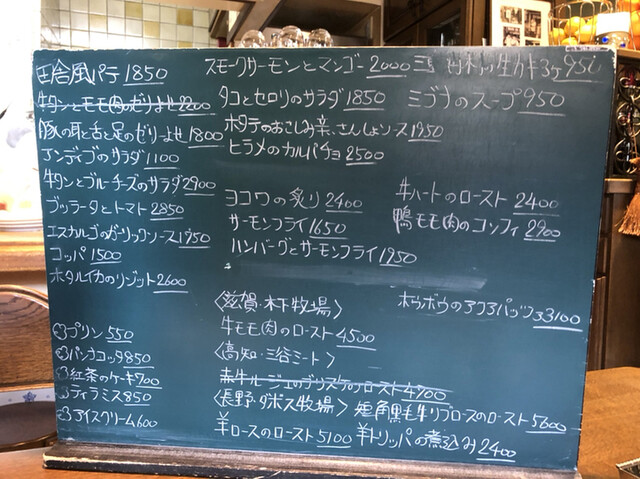 田舎風パテ 1850
牛タンとモモ肉のゼリよせ 2200
豚の耳と舌と足のゼリーよせ 1800
アンディブのサラダ 1100
牛タンとブルーチーズのサラダ 2900
ブッラータとトマト 2850
エスカルゴのガーリックソース 1950
コッパ 1500
ホタルイカのリゾット 2600
プリン 550
パンナコッタ 850
紅茶のケーキ 700
ティラミス 850
アイスクリーム 600
スモークサーモンとマンゴー 2000
タコとセロリのサラダ 1850
ホタテのおこしみ辛、さんしょソース 1950
ヒラメのカルパチョ 2500
ヨコワの炙り 2400
サーモンフライ 1650
ハンバーグとサーモンフライ 1950
〈滋賀・木下牧場〉
牛モモ肉のロースト 4500
〈高知・三谷ミート〉
赤牛ルージュのブリスケのロースト 4700
〈長野・ダボス牧場〉 短角黒毛牛リブロースのロースト 5600
羊ロースのロースト 5100 羊トリッパの煮込み 2400
生カキ 3ケ 950
ミブナのスープ 950
牛ハートのロースト 2400
鴨モモ肉のコンフィ 2900
ホウボウのアクアパッツァ 3100